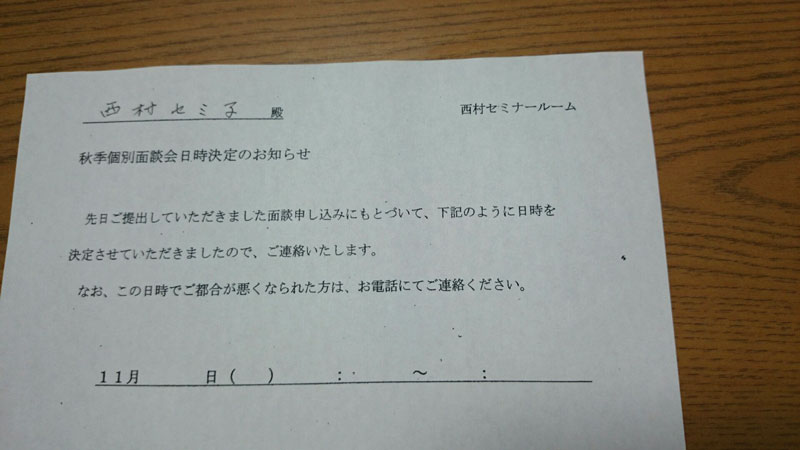 西村セミ子 殿
西村セミナールーム
秋季個別面談会日時決定のお知らせ
先日ご提出していただきました面談申し込みにもとづいて、下記のように日時を
決定させていただきましたので、ご連絡いたします。
なお、この日時でご都合が悪くなられた方は、お電話にてご連絡ください。
11月 日( ) : ~ :